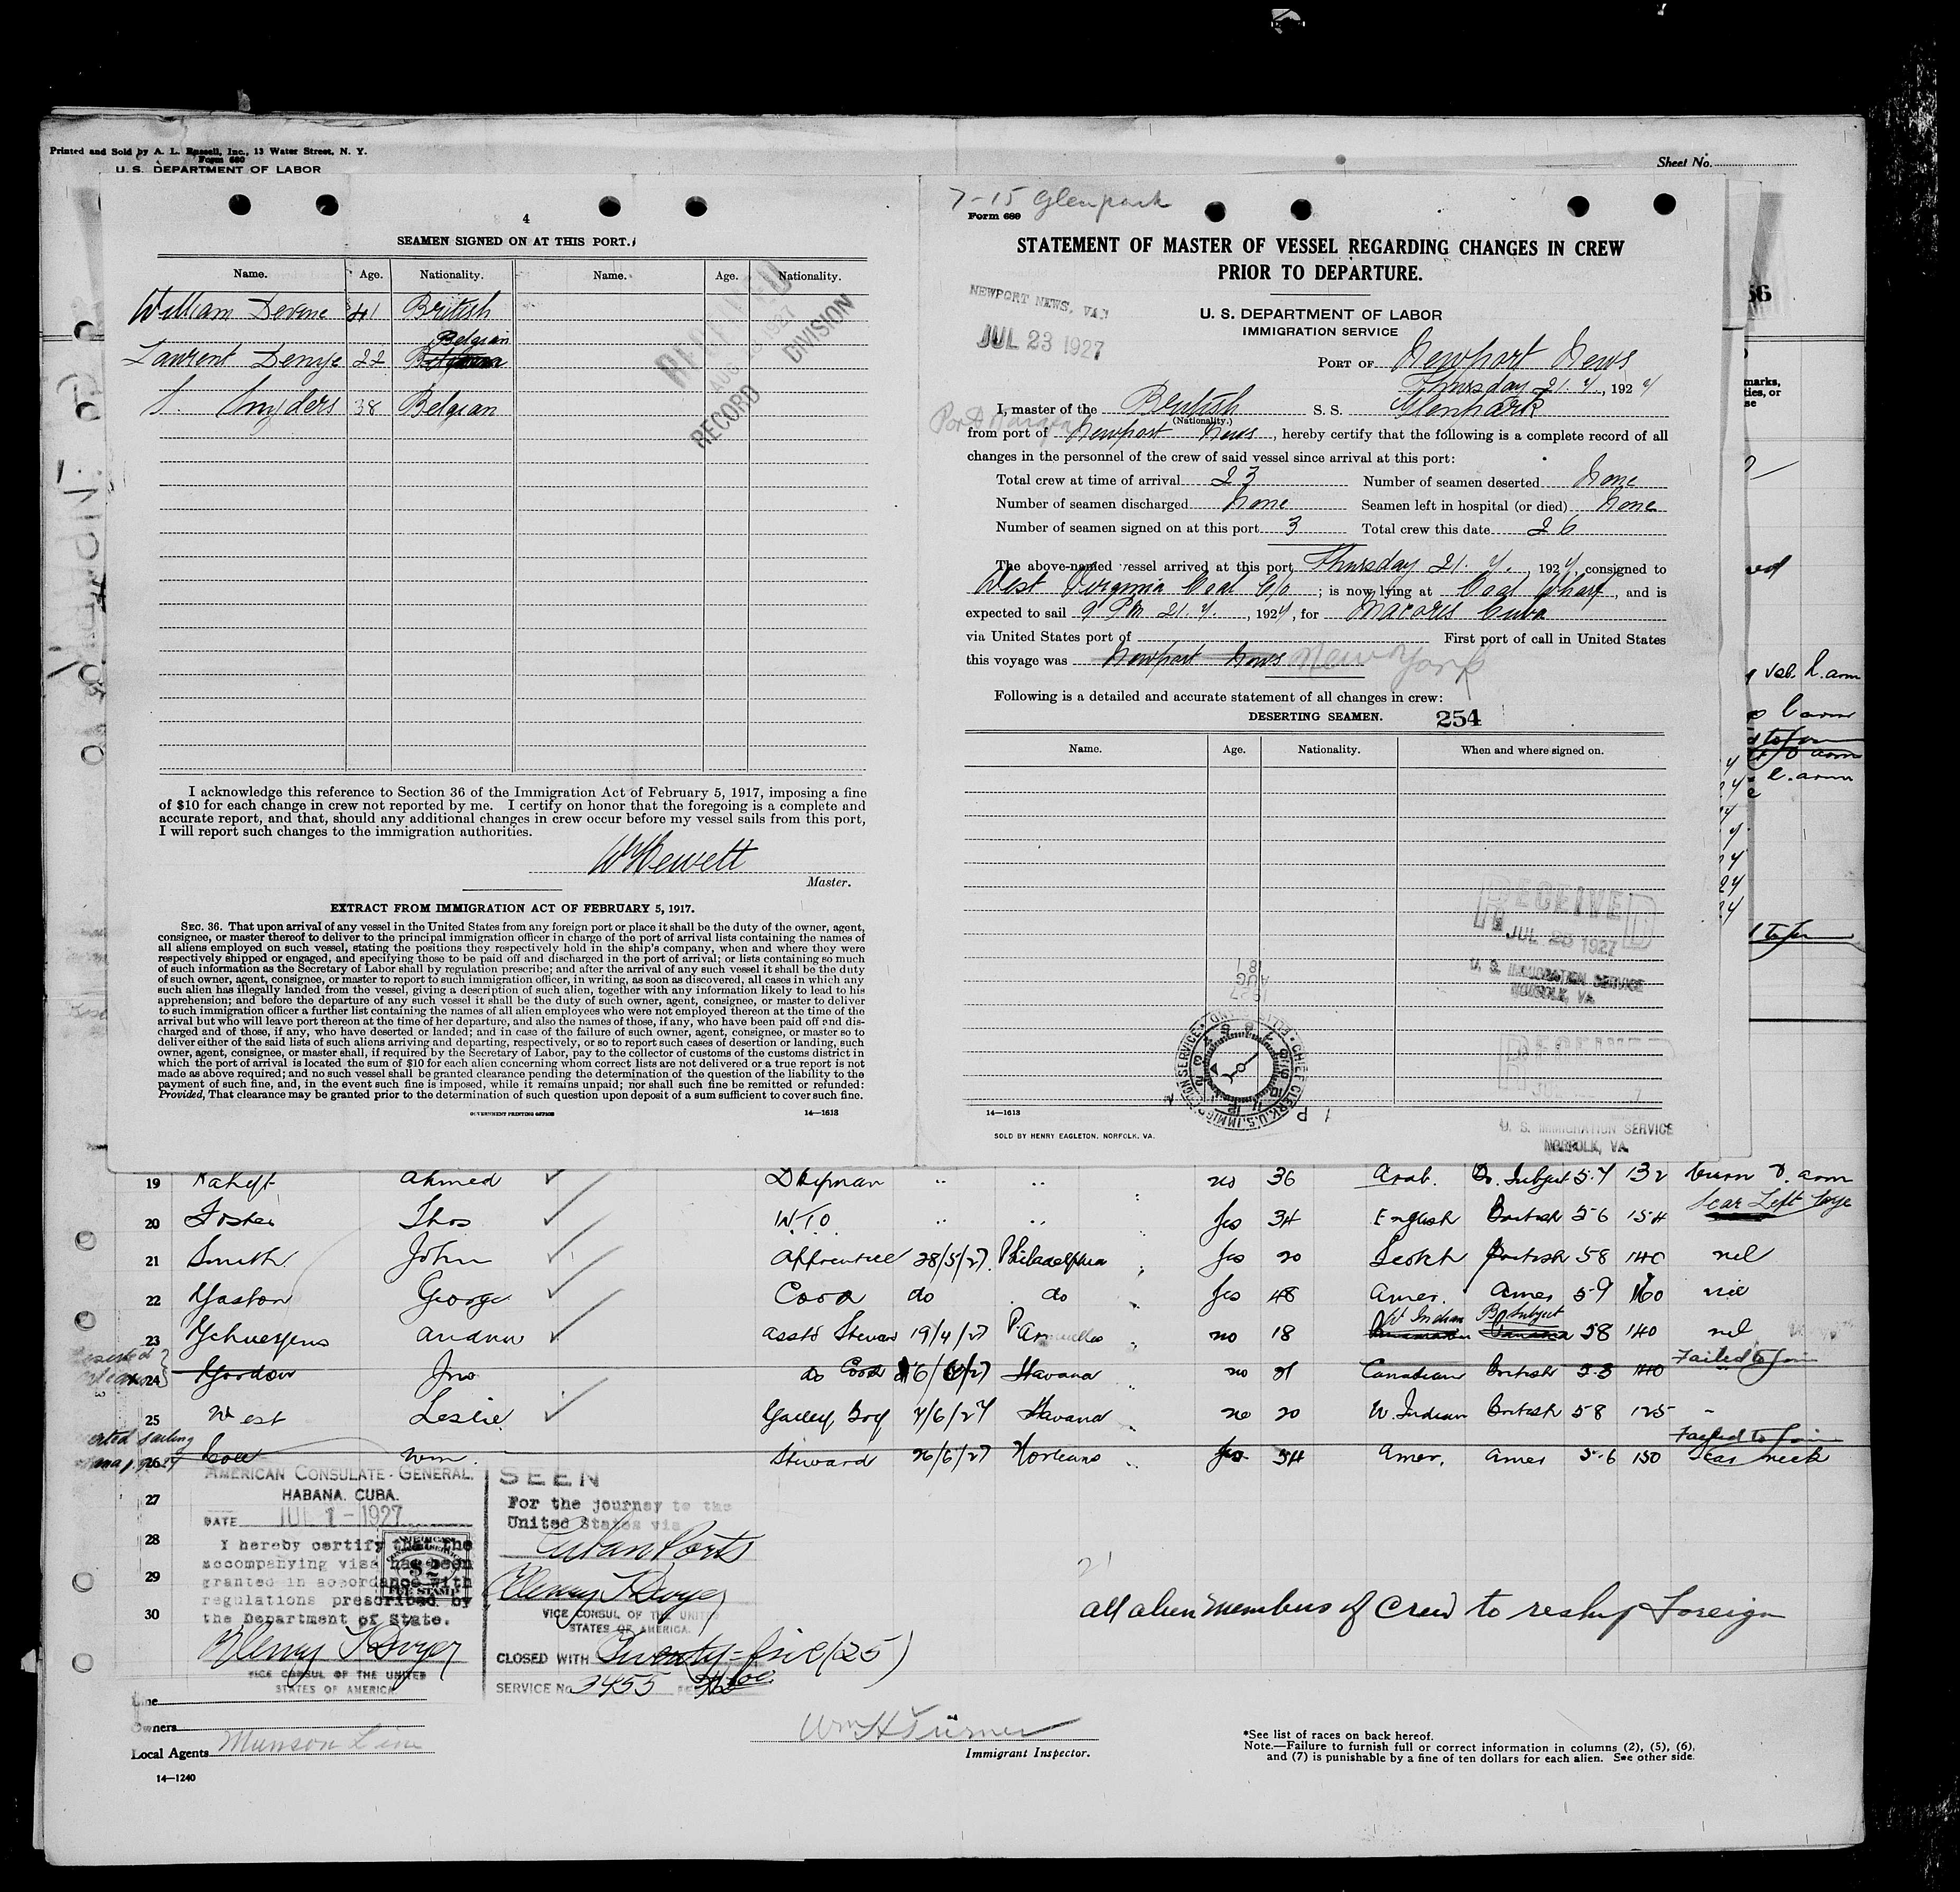 Printed and Sold by A. L. Russell, Inc., 13 Water Street, N. Y.
Form 680
U. S. DEPARTMENT OF LABOR
Sheet No.
4
SEAMEN SIGNED ON AT THIS PORT.
Name. Age. Nationality. Name. Age. Nationality.
William Devine 41 British
Belgian
Laurent Denye 22
S. Snyders 38 Belgian
RECEIVED
AUG 1927
RECORD DIVISION
I acknowledge this reference to Section 36 of the Immigration Act of February 5, 1917, imposing a fine
of $10 for each change in crew not reported by me. I certify on honor that the foregoing is a complete and
accurate report, and that, should any additional changes in crew occur before my vessel sails from this port,
I will report such changes to the immigration authorities.
W Hewett
Master.
EXTRACT FROM IMMIGRATION ACT OF FEBRUARY 5, 1917.
SEC. 36. That upon arrival of any vessel in the United States from any foreign port or place it shall be the duty of the owner, agent,
consignee, or master thereof to deliver to the principal immigration officer in charge of the port of arrival lists containing the names of
all aliens employed on such vessel, stating the positions they respectively hold in the ship's company, when and where they were
respectively shipped or engaged, and specifying those to be paid off and discharged in the port of arrival; or lists containing so much
of such information as the Secretary of Labor shall by regulation prescribe; and after the arrival of any such vessel it shall be the duty
of such owner, agent, consignee, or master to report to such immigration officer, in writing, as soon as discovered, all cases in which any
such alien has illegally landed from the vessel, giving a description of such alien, together with any information likely to lead to his
apprehension; and before the departure of any such vessel it shall be the duty of such owner, agent, consignee, or master to deliver
to such immigration officer a further list containing the names of all alien employees who were not employed thereon at the time of the
arrival but who will leave port thereon at the time of her departure, and also the names of those, if any, who have been paid off and dis-
charged and of those, if any, who have deserted or landed; and in case of the failure of such owner, agent, consignee, or master so to
deliver either of the said lists of such aliens arriving and departing, respectively, or so to report such cases of desertion or landing, such
owner, agent, consignee, or master shall, if required by the Secretary of Labor, pay to the collector of customs of the customs district in
which the port of arrival is located the sum of $10 for each alien concerning whom correct lists are not delivered or a true report is not
made as above required; and no such vessel shall be granted clearance pending the determination of the question of the liability to the
payment of such fine, and, in the event such fine is imposed, while it remains unpaid; nor shall such fine be remitted or refunded:
Provided, That clearance may be granted prior to the determination of such question upon deposit of a sum sufficient to cover such fine.
GOVERNMENT PRINTING OFFICE 14—1613
7-15 Glenpark
Form 680
STATEMENT OF MASTER OF VESSEL REGARDING CHANGES IN CREW
PRIOR TO DEPARTURE.
NEWPORT NEWS, VA.
JUL 23 1927
U. S. DEPARTMENT OF LABOR
IMMIGRATION SERVICE
PORT OF Newport News
Thursday 21. 7., 1927
I, master of the British S. S. Glenpark
(Nationality.)
from port of Newport News, hereby certify that the following is a complete record of all
changes in the personnel of the crew of said vessel since arrival at this port:
Total crew at time of arrival 23 Number of seamen deserted None
Number of seamen discharged None Seamen left in hospital (or died) None
Number of seamen signed on at this port 3 Total crew this date 26
The above-named vessel arrived at this port Thursday 21. 7., 1927, consigned to
West Virginia Coal Co; is now lying at Coal Wharf, and is
expected to sail 9 PM 21. 7., 1927, for Macoris Cuba
via United States port of First port of call in United States
this voyage was Newport News New York
Following is a detailed and accurate statement of all changes in crew:
DESERTING SEAMEN. 254
Name. Age. Nationality. When and where signed on.
RECEIVED
JUL 23 1927
U. S. IMMIGRATION SERVICE
NORFOLK, VA.
AUG
1927
CHIEF CLERK, U.S. IMMIGRATION SERVICE ELLIS ISLAND
RECEIVED
14—1613
SOLD BY HENRY EAGLETON, NORFOLK, VA.
U. S. IMMIGRATION SERVICE
NORFOLK, VA.
19 Ahmed Dkyman " " no 36 Arab. Br. Subject 5.7 132 burn arm
20 Foster Thos W.T.O " " yes 34 English British 5 6 154 Scar Left eye
21 Smith John Apprentice 28/5/27 Philadelphia " yes 20 Scotch British 5 8 140 nil
22 Gaston George Cook do do " yes 48 Amer. Amer 5-9 160 nil
W Indian Br Subject
23 asstd Steward 19/4/27 " no 18 5 8 140 nil
24 Gordon Jno do Cook Havana " no 21 Canadian British 5.3 140 Failed to Join
25 West Leslie Galley Boy 7/6/27 Havana " no 20 W. Indian British 5 8 125 -
26 Wm. Steward 26/6/27 N orleans " yes 54 Amer. Amer 5-6 150 Failed to Join
Scar neck
27
28
29
30
AMERICAN CONSULATE-GENERAL.
HABANA. CUBA.
DATE JUL 1-1927
I hereby certify that the
accompanying visa has been
granted in accordance with
regulations prescribed by
the Department of State.
AMERICAN
$2
FEE STAMP
Henry T Dwyer
VICE CONSUL OF THE UNITED
STATES OF AMERICA
SEEN
For the journey to the
United States via
Cuban Ports
Henry T Dwyer
VICE CONSUL OF THE UNITED
STATES OF AMERICA.
CLOSED WITH Twenty-five (25)
SERVICE No. 3455
all alien members of Crew to reship Foreign
Line
Owners
Local Agents Munson Line
14—1240
Wm H Turner
Immigrant Inspector.
*See list of races on back hereof.
Note.—Failure to furnish full or correct information in columns (2), (5), (6),
and (7) is punishable by a fine of ten dollars for each alien. See other side.